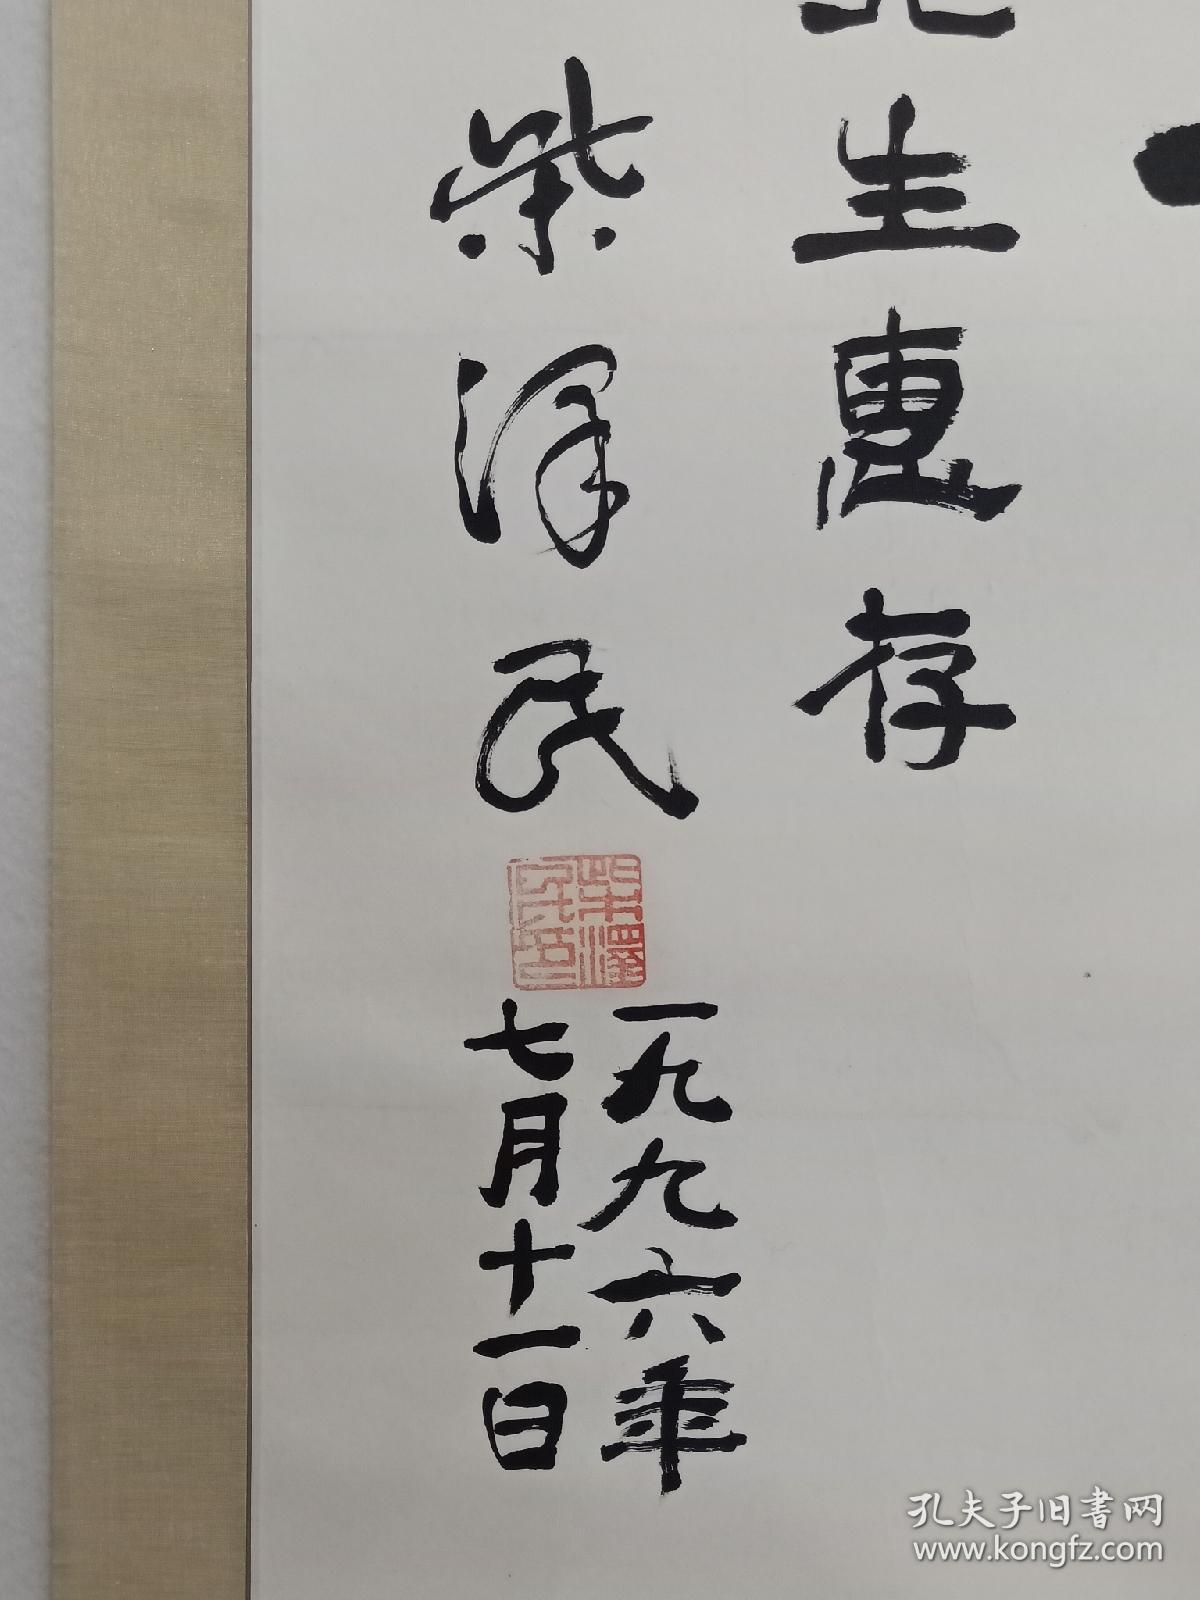 生惠存
柴泽民
柴澤民
一九九六年
七月十一日
孔夫子旧书网
www.kongfz.com